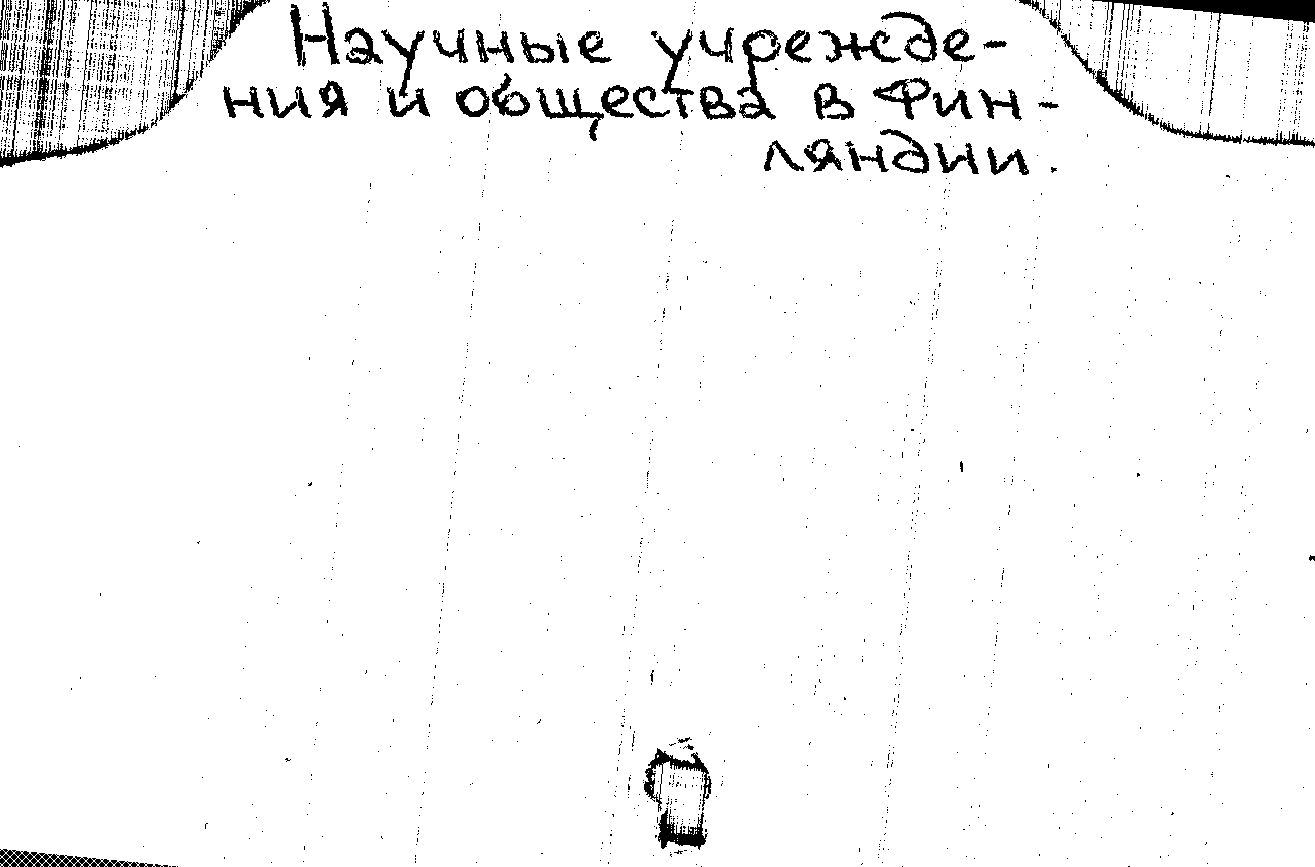 Научные учрежде-
ния и общества в Фин-
ляндии.